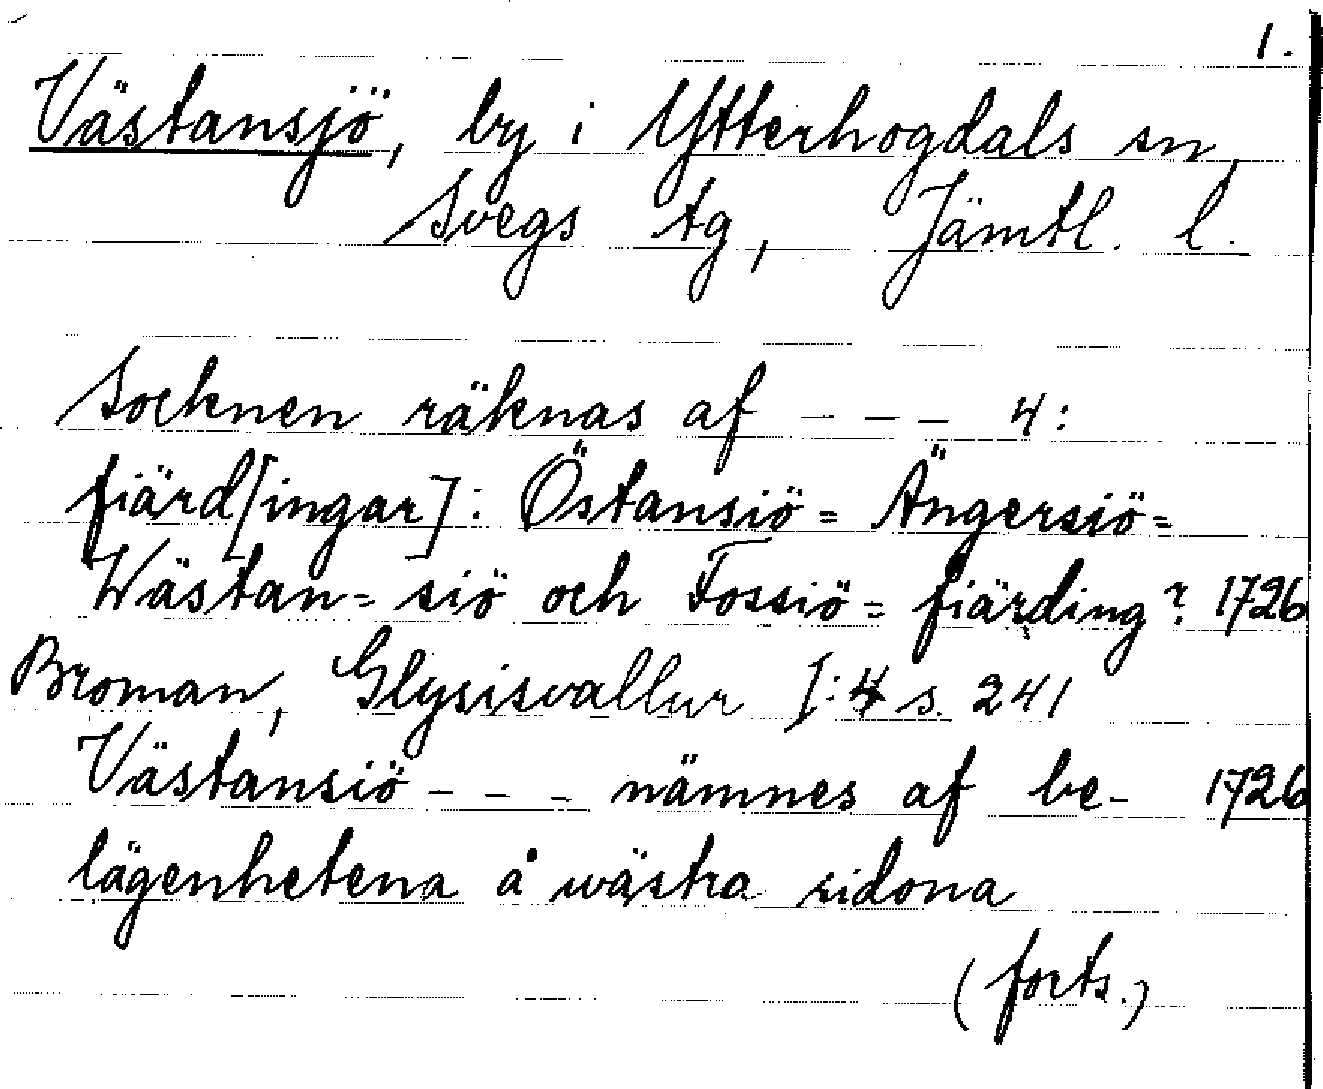 1.
Västansjö, by i Ytterhogdals sn,
Svegs tg, Jämtl. l.
Socknen räknas af - - - 4:
fiärd[ingar]: Östansiö= Ängersiö=
Wästan= siö och Fossiö= fiärding? 1726
Broman, Glysisvallur I:4 s. 241
Västansiö - - - nämnes af be- 1726
lägenhetena å wästra sidona
(forts.)